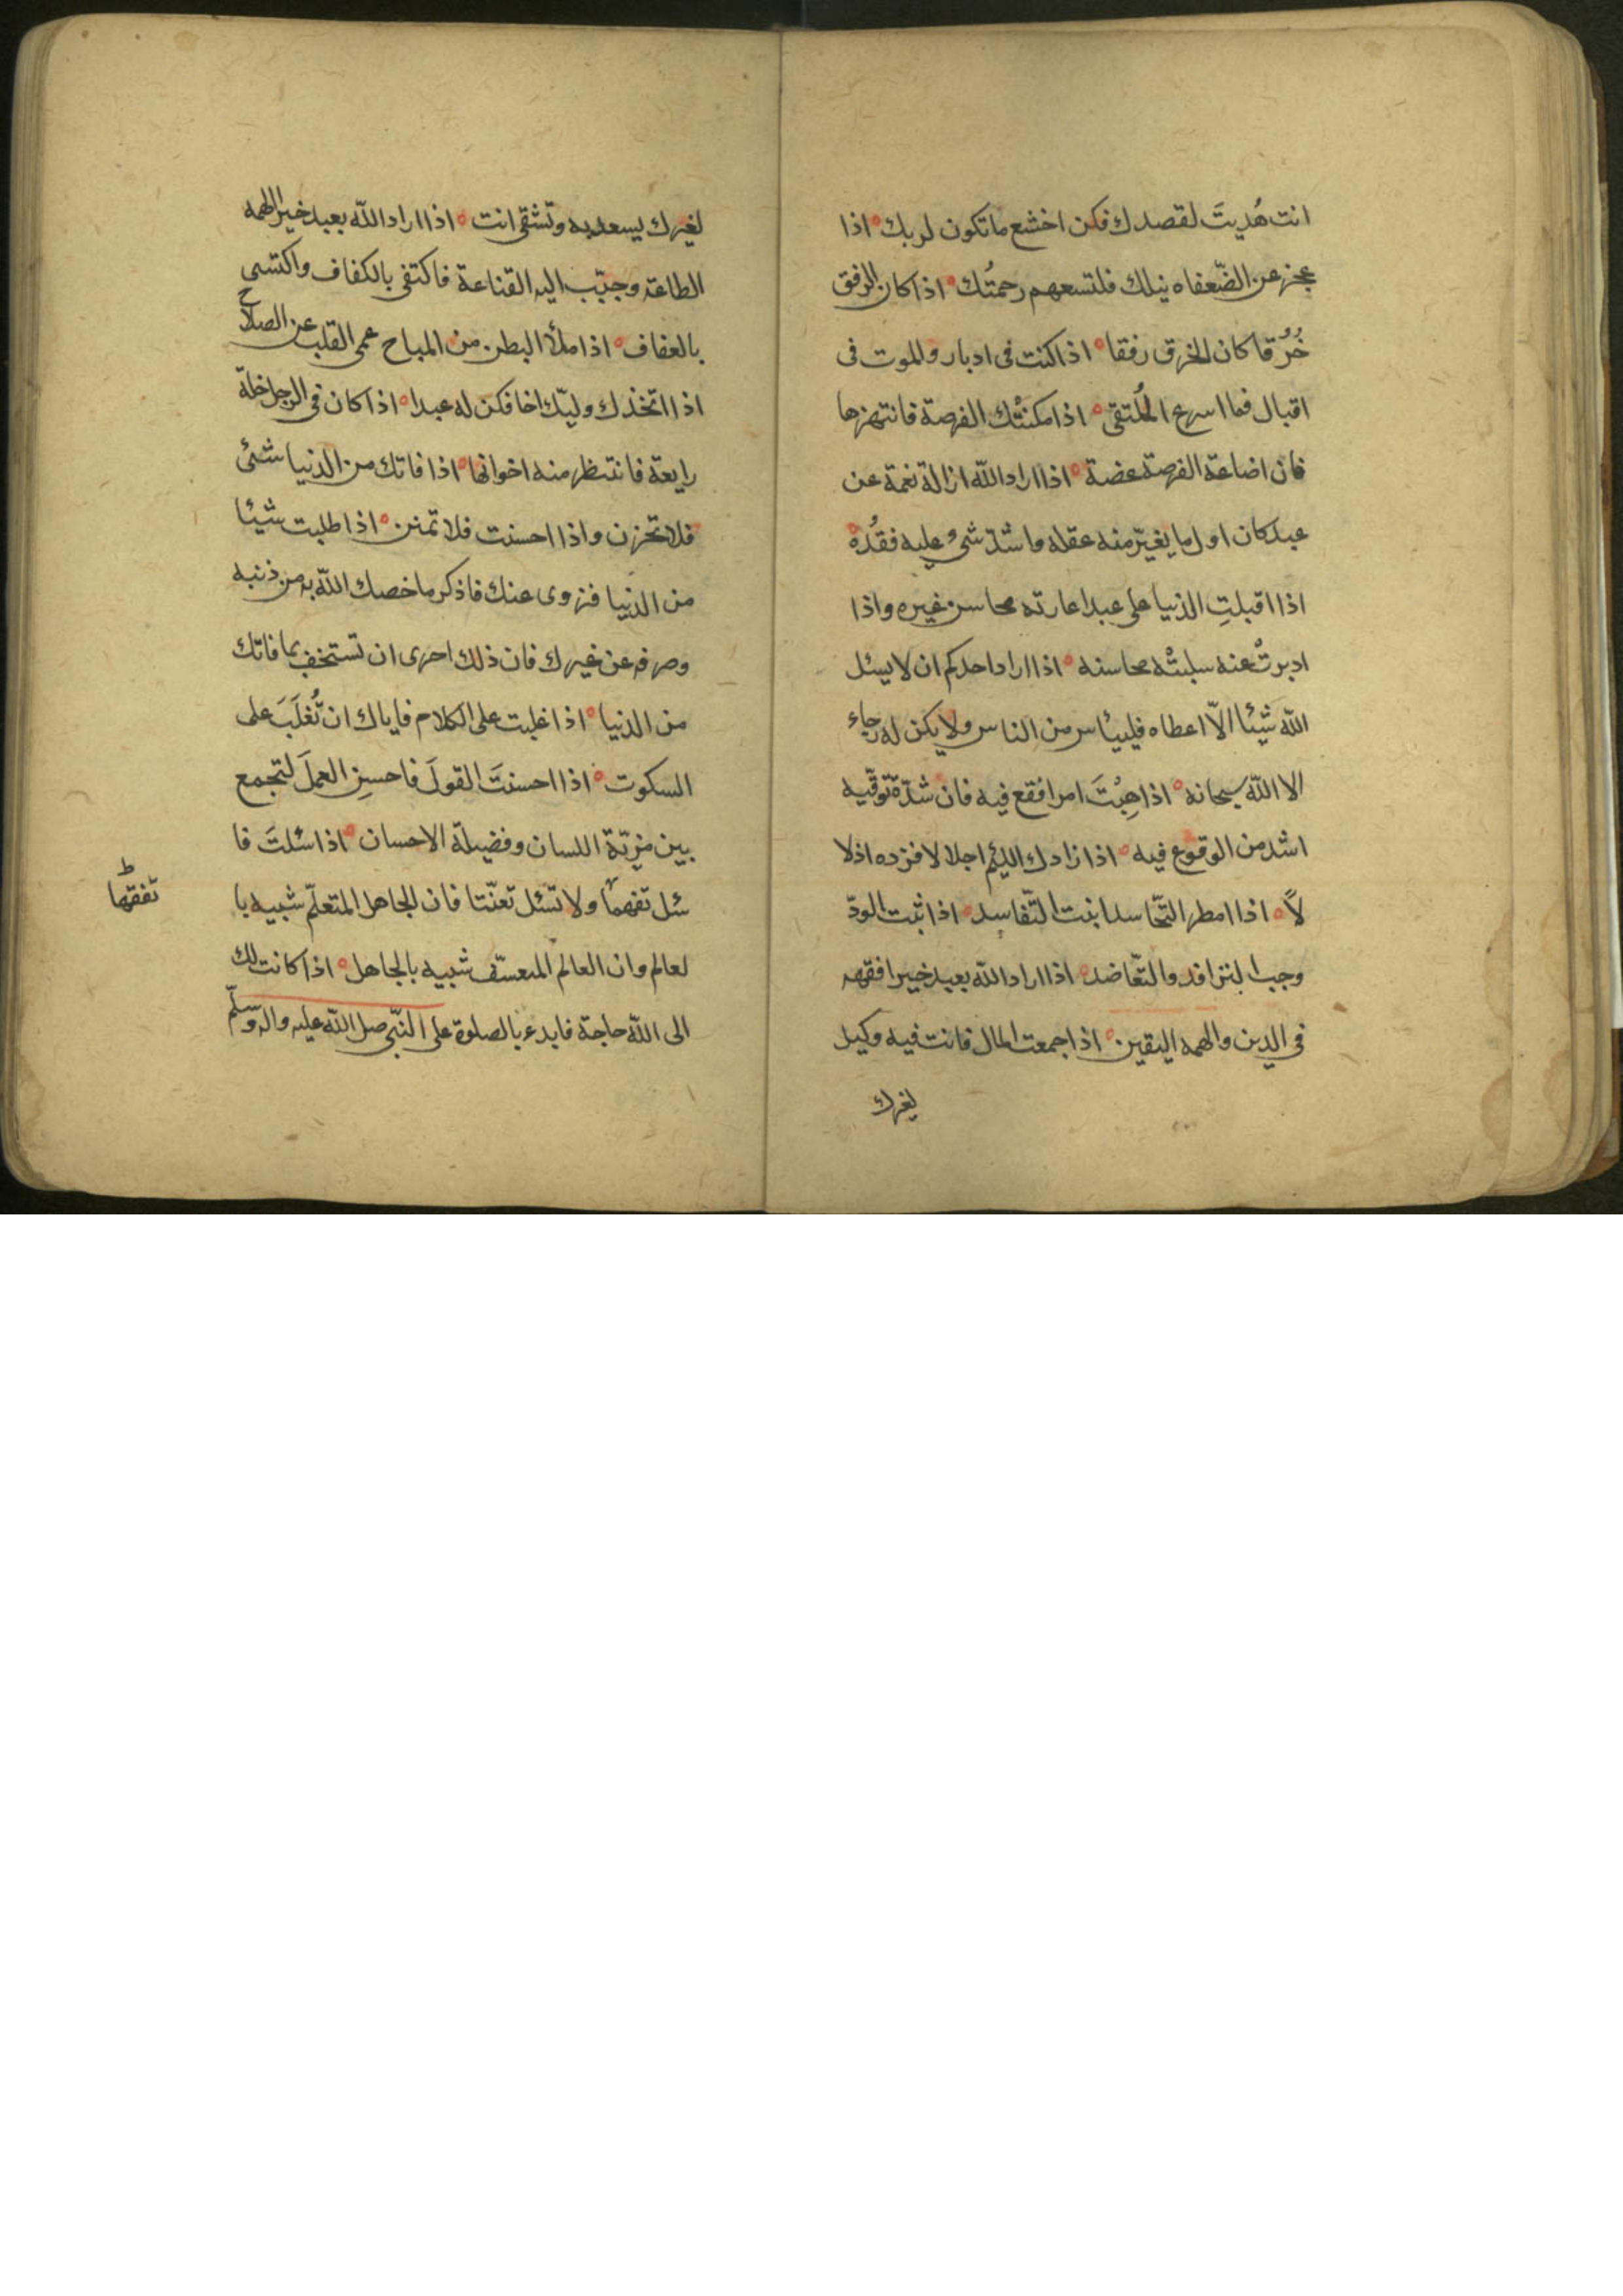 انت هُديتَ لقصدك فكن اخشع ما تكون لربك ه اذا
عجز عن الضّعفاه نيلك فلتسعهم رحمتُك ه اذا كان الرفق
خُرُقا كان الخرق رفقا ه اذا كنت فى ادبار والموت فى
اقبال فما اسرع المُلتقى ه اذا مكنتْك الفرصة فانتهزها
فان اضاعة الفرصة غصة ه اذا اراد الله ازالة نعمة عن
عبد كان اول ما يغيّر منه عقله واشدّ شىء عليه فقدُه ه
اذا اقبلتِ الدنيا على عبد اعارته محاسن غيره واذا
ادبرتْ عنه سلبتْه محاسنه ه اذا اراد احدكم ان لا يسئل
الله شيئا الّا اعطاه فلييئاس من الناس ولا يكن له رجاء
الا الله سبحانه ه اذا هِبْتَ امرا فقع فيه فان شدّة توقّيه
اشد من الوقوع فيه ه اذا زادك اللئيم اجلالا فزده اذلا
لاً ه اذا امطر التّحاسد انبت التّفاسد ه اذا ثبت الودّ
وجب الترافد والتّعاضد ه اذا اراد الله بعبد خيرا فقهه
فى الدين والهمه اليقين ه اذا جمعت المال فانت فيه وكيل
لغيرك
لغيرك يسعد به وتشقى انت ه اذا اراد الله بعبد خيرا الهمه
الطاعة وحبّب اليه القناعة فاكتفى بالكفاف واكتسى
بالعفاف ه اذا ملأ البطن من المباح عمى القلب عن الصلاح
اذا اتخذك وليّك اخا فكن له عبدا ه اذا كان فى الرجل خلّة
رايعة فانتظر منه اخواتها ه اذا فاتك من الدنيا شئ
فلا تحزن واذا احسنت فلا تمنن ه اذا طلبت شيئا
من الدنيا فزوى عنك فاذكر ما خصك الله به من ذنبه
وصرفه عن غيرك فان ذلك احرى ان تستخف بما فاتك
من الدنيا ه اذا غلبت على الكلام فاياك ان تُغلَبَ على
السكوت ه اذا احسنتَ القولَ فاحسِن العملَ لتجمع
بين مزيّة اللسان وفضيلة الاحسان ه اذا سُئلتَ فا
سئل تفهمًا ولا تسئل تعنّتا فان الجاهل المتعلّم شبيه با
تفقها ط
لعالم وان العالم المتعسّف شبيه بالجاهل ه اذا كانت لك
الى الله حاجة فابدء بالصلوة على النّبى صلى الله عليه واله وسلّم